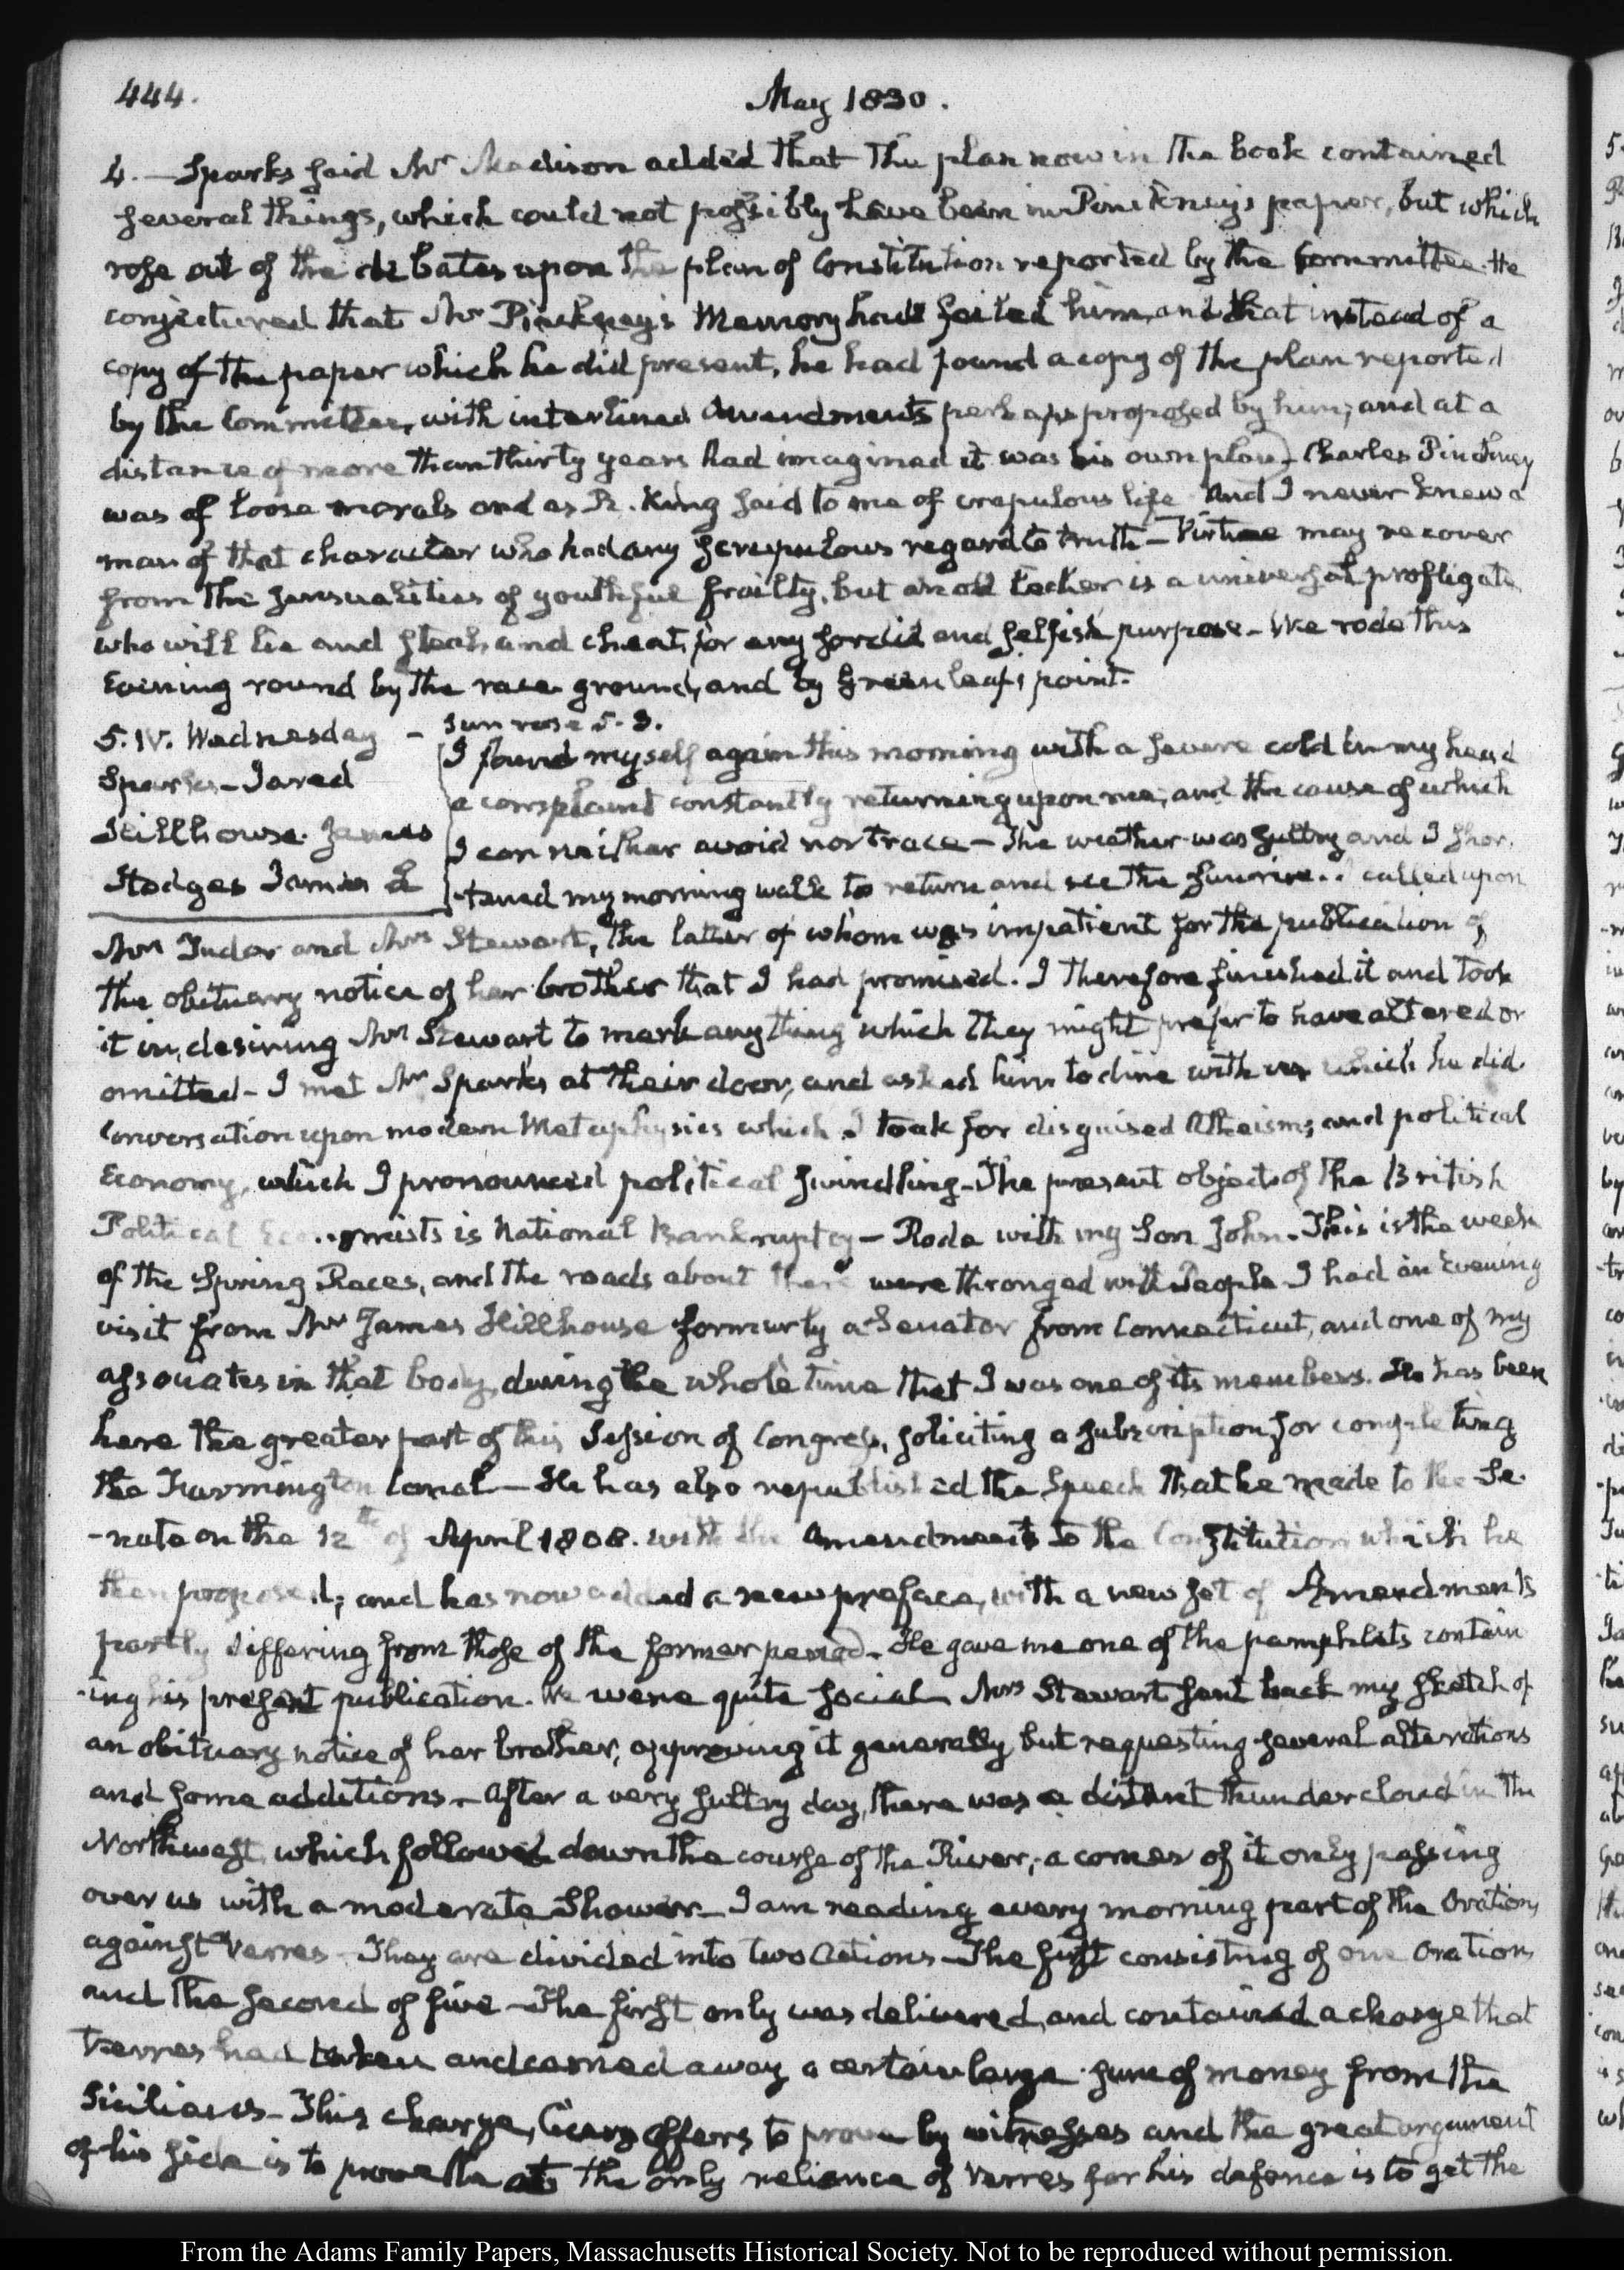 444.
May 1830.
4. — Sparks said Mr Madison added that the plan now in the book contained
several things, which could not possibly have been in Pinckney's paper, but which
rose out of the debates upon the plan of Constitution reported by the Committee. He
conjectured that Mr Pinckney's Memory had failed him, and that instead of a
copy of the paper which he did present, he had found a copy of the plan reported
by the Committee, with interlined Amendments perhaps proposed by him; and at a
distance of more than thirty years had imagined it was his own plan) Charles Pinckney
was of loose morals and as R. King said to me of crapulous life And I never knew a
man of that character who had any scrupulous regard to truth — Virtue may recover
from the sensualities of youthful frailty, but an old lecher is a universal profligate
who will lie and steal, and cheat, for any sordid and selfish purpose — We rode this
Evening round by the race ground, and by Greenleaf's point.
5. IV. Wednesday — Sun rose 5. 3.
Sparks — Jared
Hillhouse. James
Hodges James L
I found myself again this morning with a severe cold in my head
a complaint constantly returning upon me; and the cause of which
I can neither avoid nor trace — The weather was sultry and I shor.
-tened my morning walk to return and see the sunrise.. I called upon
Mrs Tudor and Mrs Stewart, the latter of whom was impatient for the publication of
the obituary notice of her brother that I had promised. I therefore finished it and took
it in, desiring Mrs Stewart to mark any thing which they might prefer to have altered or
omitted — I met Mr Sparks at their door, and asked him to dine with us which he did.
Conversation upon modern Metaphysics which I took for disguised Atheism; and political
Economy, which I pronounced political swindling — The present object of the British
Political Economists is National Bankruptcy — Rode with my Son John. This is the week
of the Spring Races, and the roads about there were thronged with People I had an Evening
visit from Mr James Hillhouse formerly a Senator from Connecticut, and one of my
associates in that body, during the whole time that I was one of its members. He has been
here the greater part of this Session of Congress, soliciting a subscription for completing
the Farmington Canal — He has also republished the Speech that he made to the Se-
-nate on the 12th of April 1808. with the Amendments to the Constitution which he
then proposed; and has now added a new preface, with a new set of Amendments
partly differing from those of the former period — He gave me one of the pamphlets contain
-ing his present publication. We were quite social Mrs Stewart sent back my sketch of
an obituary notice of her brother, approving it generally but requesting several alterations
and some additions — After a very sultry day, there was a distant thunder cloud in the
Northwest, which followed down the course of the River; a corner of it only passing
over us with a moderate Shower — I am reading every morning part of the Orations
against Verres — They are divided into two Actions — The first consisting of one Oration
and the second of five — The first only was delivered, and contained a charge that
Verres had taken and carried away a certain large sum of money from the
Sicilians — This charge, Cicero offers to prove by witnesses and the great argument
of his side is to prove that the only reliance of Verres for his defence is to get the
From the Adams Family Papers, Massachusetts Historical Society. Not to be reproduced without permission.